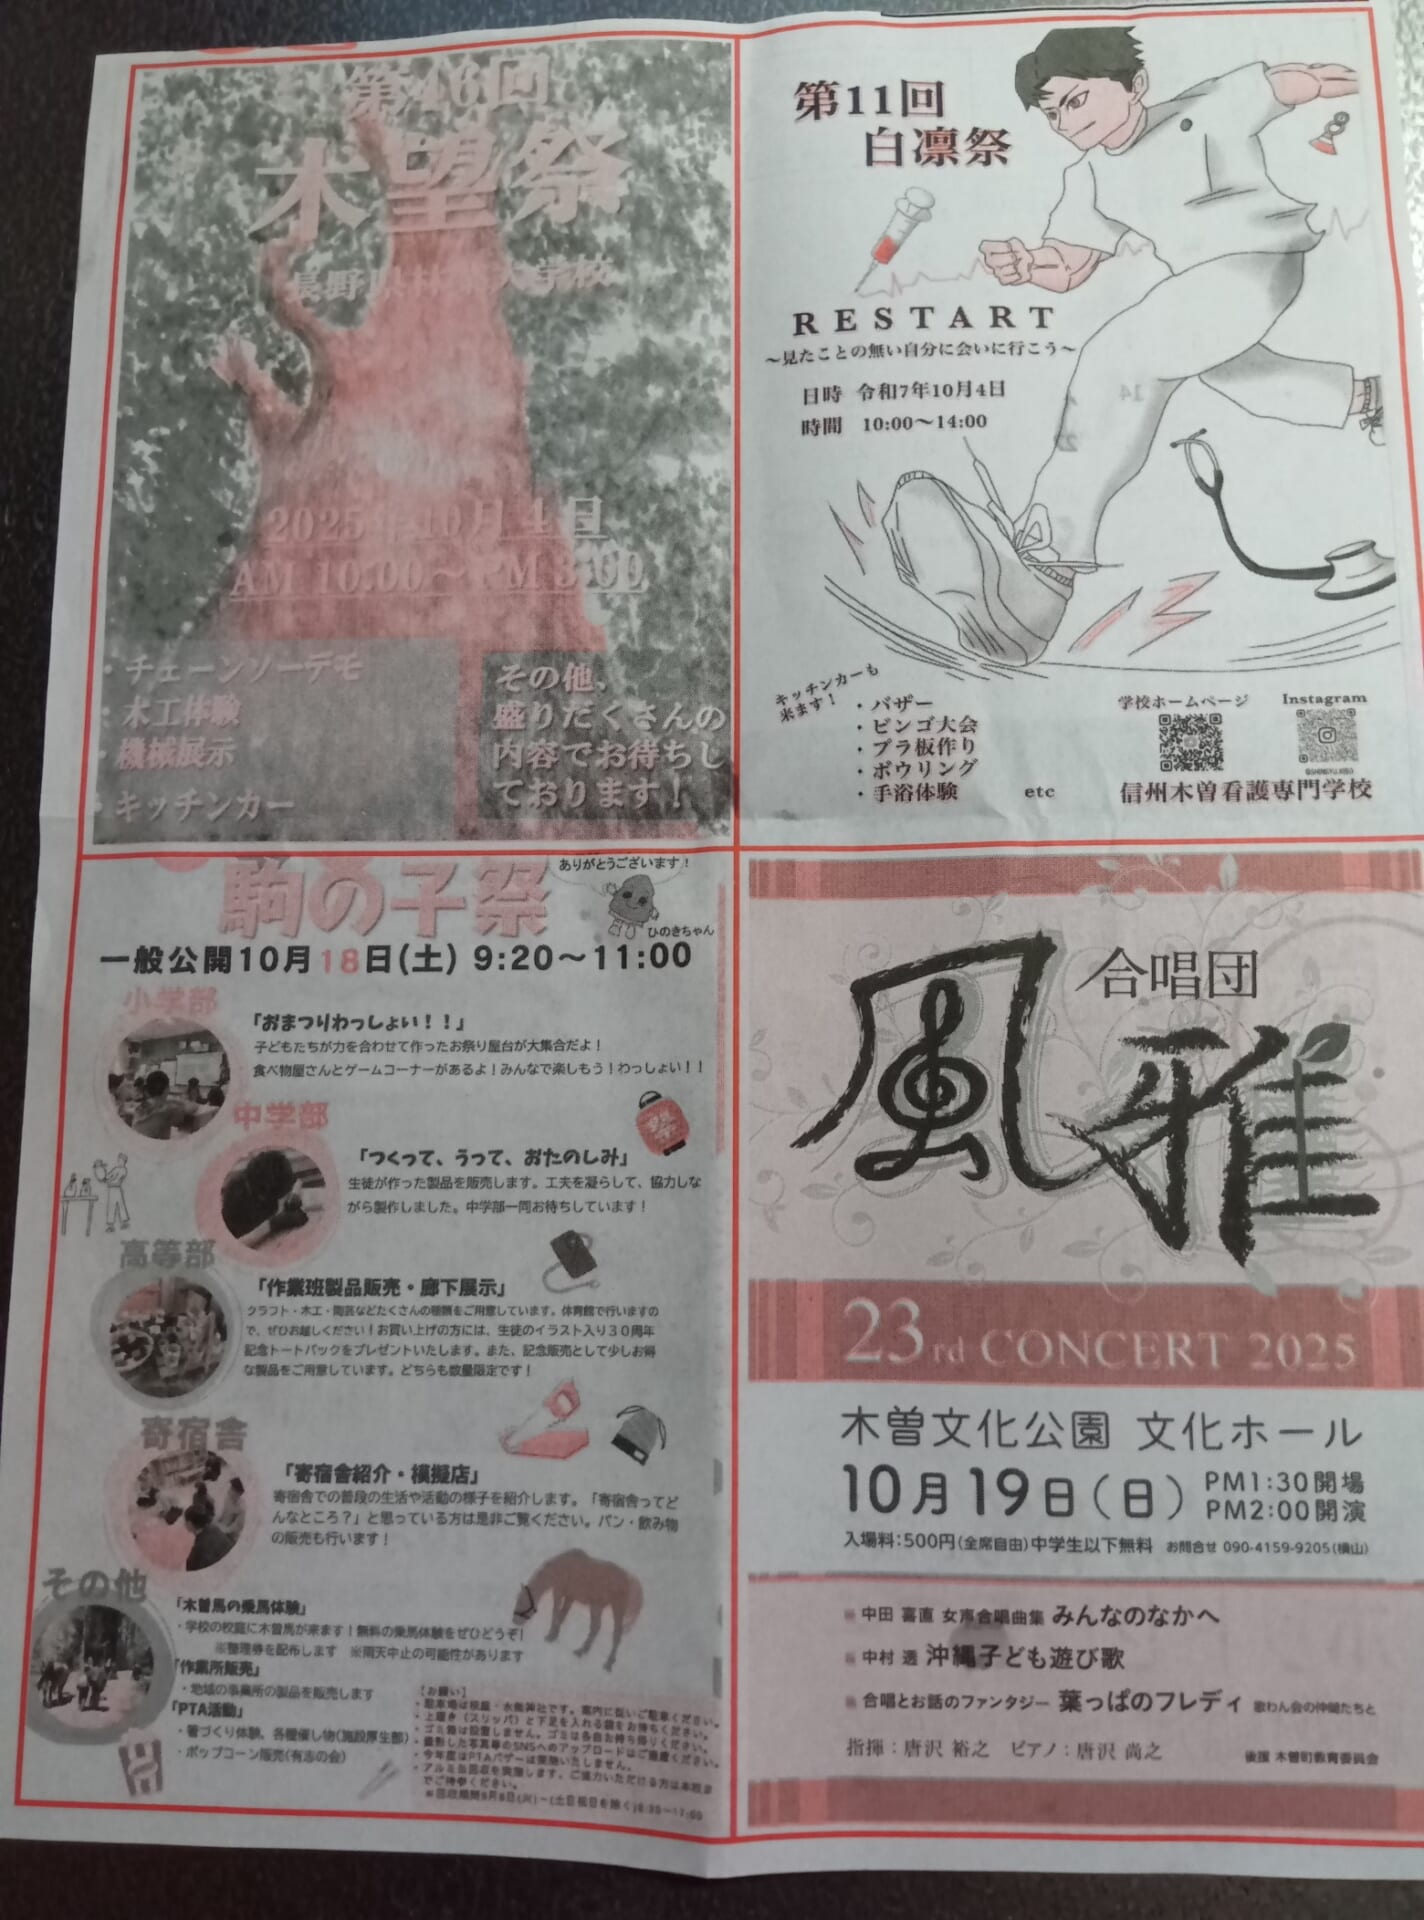 第46回
木望祭
長野県林業大学校
2025年10月4日
AM 10:00～PM 3:00
・チェーンソーデモ
・木工体験
・機械展示
・キッチンカー
その他、
盛りだくさんの
内容でお待ちし
ております！
第11回
白凛祭
RESTART
～見たことの無い自分に会いに行こう～
日時 令和7年10月4日
時間 10:00～14:00
キッチンカーも
来ます！
・バザー
・ビンゴ大会
・プラ板作り
・ボウリング
・手浴体験 etc
学校ホームページ
Instagram
信州木曽看護専門学校
駒の子祭
ありがとうございます！
ひのきちゃん
一般公開10月18日(土) 9:20～11:00
小学部
「おまつりわっしょい！！」
子どもたちが力を合わせて作ったお祭り屋台が大集合だよ！
食べ物屋さんとゲームコーナーがあるよ！みんなで楽しもう！わっしょい！！
祭
中学部
「つくって、うって、おたのしみ」
生徒が作った製品を販売します。工夫を凝らして、協力しな
がら製作しました。中学部一同お待ちしています！
高等部
「作業班製品販売・廊下展示」
クラフト・木工・陶芸などたくさんの種類をご用意しています。体育館で行いますの
で、ぜひお越しください！お買い上げの方には、生徒のイラスト入り３０周年
記念トートバックをプレゼントいたします。また、記念販売として少しお得
な製品をご用意しています。どちらも数量限定です！
寄宿舎
「寄宿舎紹介・模擬店」
寄宿舎での普段の生活や活動の様子を紹介します。「寄宿舎ってど
んなところ？」と思っている方は是非ご覧ください。パン・飲み物
の販売も行います！
その他
「木曽馬の乗馬体験」
・学校の校庭に木曽馬が来ます！無料の乗馬体験をぜひどうぞ！
※整理券を配布します ※雨天中止の可能性があります
「作業所販売」
・地域の事業所の製品を販売します
「PTA活動」
・箸づくり体験、各種催し物(施設厚生部)
・ポップコーン販売(有志の会)
【お願い】
・駐車場は校庭・水無神社です。案内に従いご駐車ください。
・上履き（スリッパ）と下足を入れる袋をお持ちください。
・ゴミ箱は設置しません。ゴミは各自お持ち帰りください。
・撮影した写真等のSNSへのアップロードはご遠慮ください。
・今年度はPTAバザーは実施いたしません。
・アルミ缶回収を実施します。ご協力いただける方は本校まで
でご持参ください。
合唱団
風雅
23rd CONCERT 2025
木曽文化公園 文化ホール
10月19日（日） PM1:30開場
PM2:00開演
入場料：500円(全席自由)中学生以下無料 お問合せ 090-4159-9205(横山)
中田 喜直 女声合唱曲集 みんなのなかへ
中村 透 沖縄子ども遊び歌
合唱とお話のファンタジー 葉っぱのフレディ 歌わん会の仲間たちと
指揮：唐沢 裕之 ピアノ：唐沢 尚之
後援 木曽町教育委員会